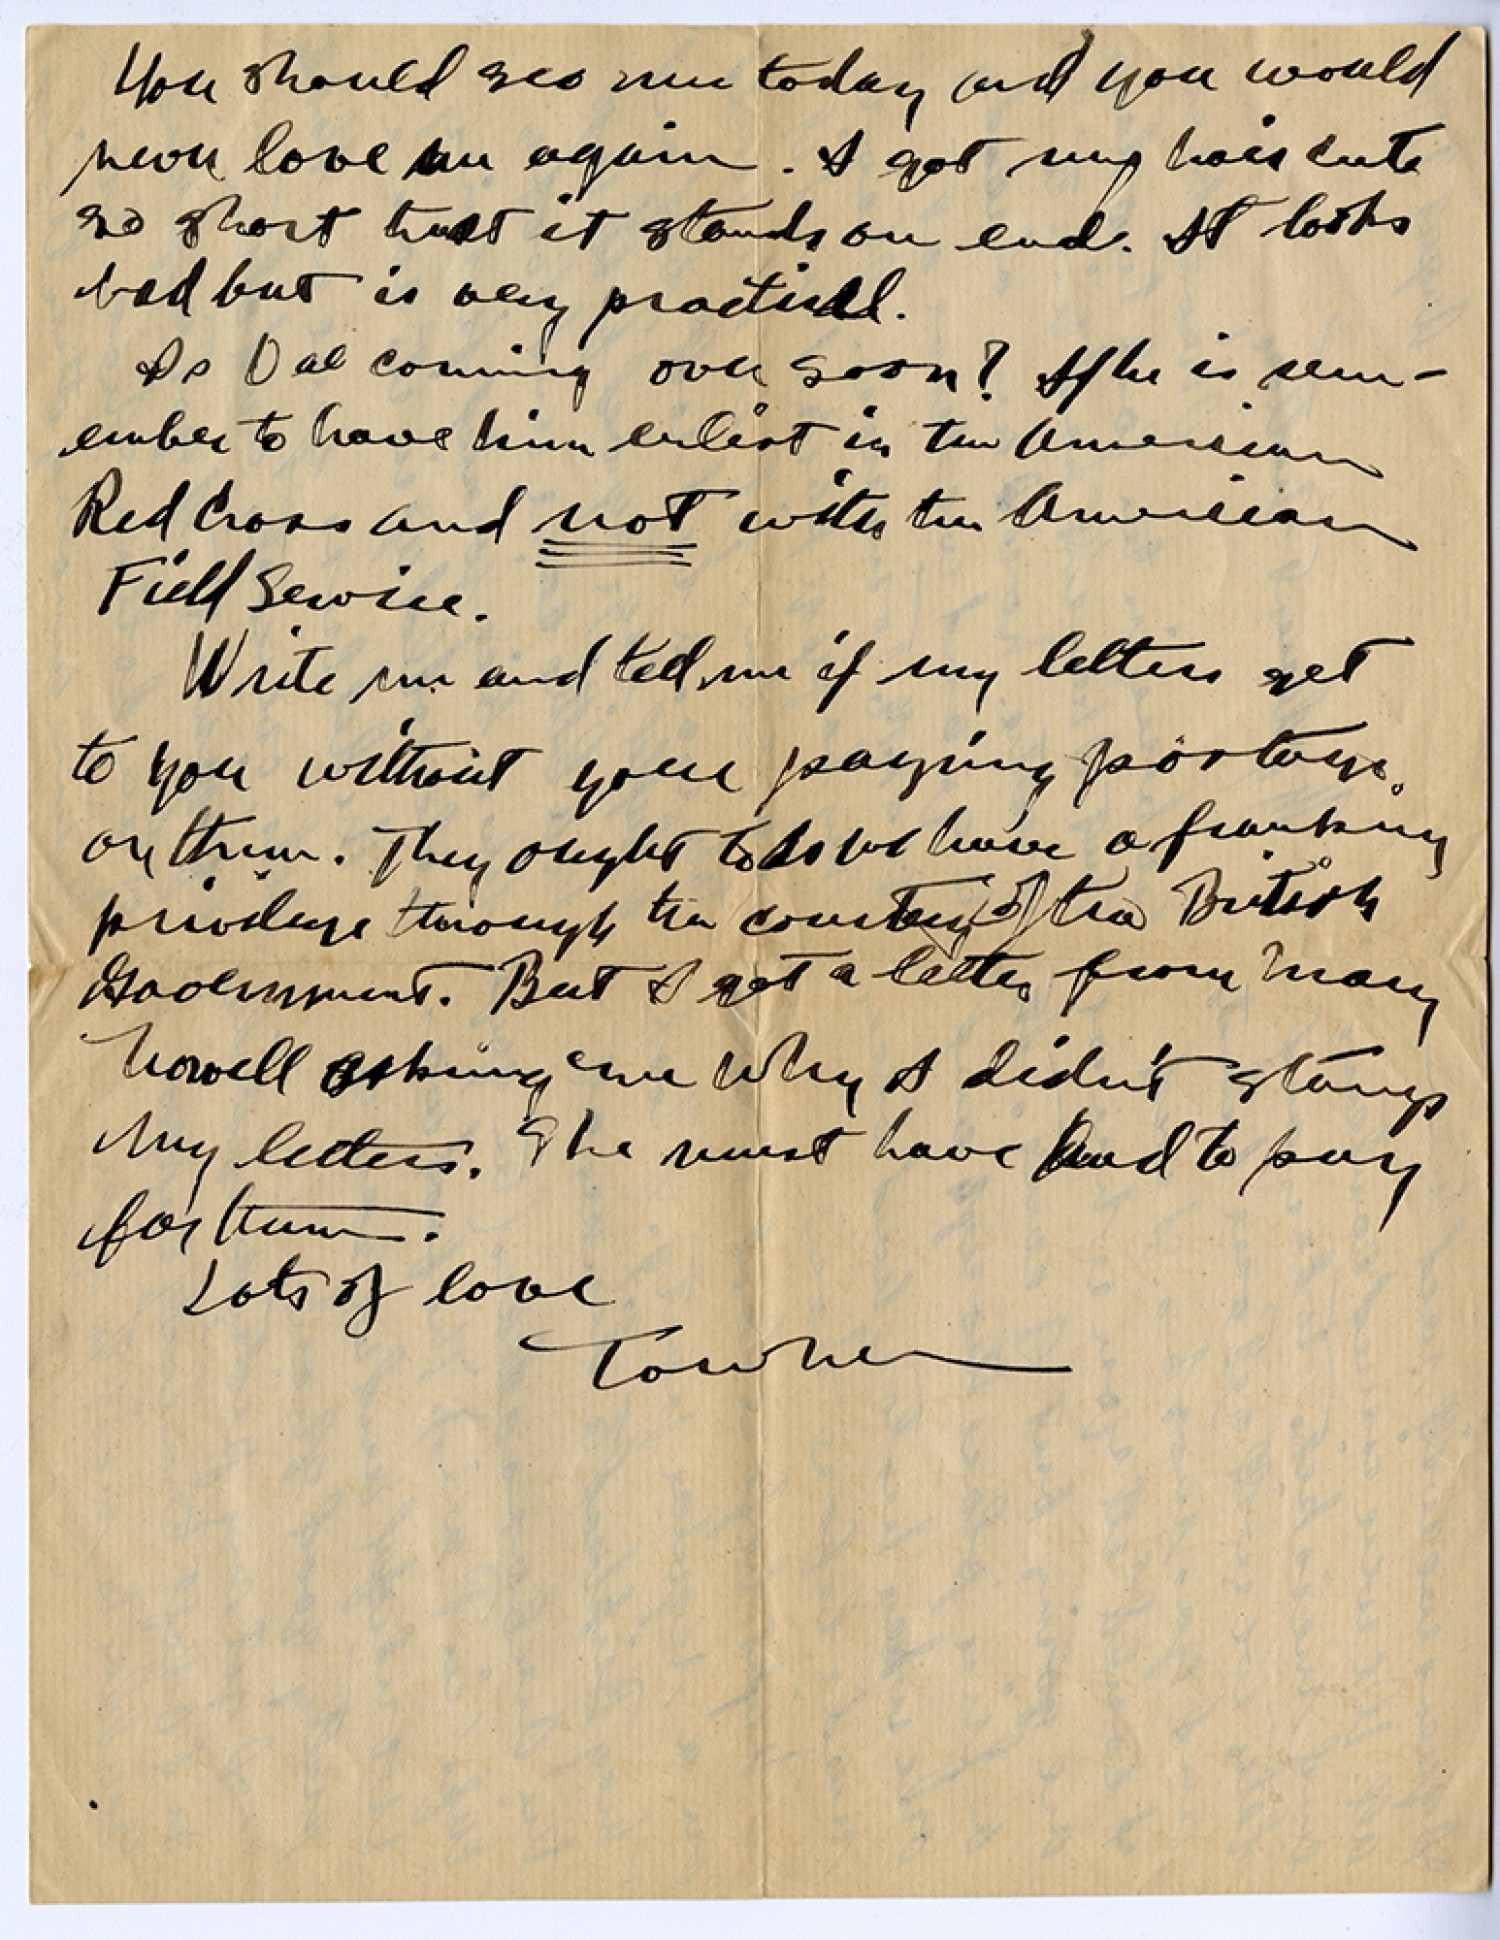 You should see me today and you would
never love me again. I got my hair cut
so short that it stands on end. It looks
bad but is very practical.
Is Dal coming over soon? If he is rem-
ember to have him enlist in the American
Red Cross and not with the American
Field Service.
Write me and tell me if my letters get
to you without your paying postage
on them. They ought to as we have a franking
privilege through the courtesy of the British
Government. But I got a letter from Mary
Howell asking me why I didn't stamp
my letters. She must have had to pay
for them.
Lots of love